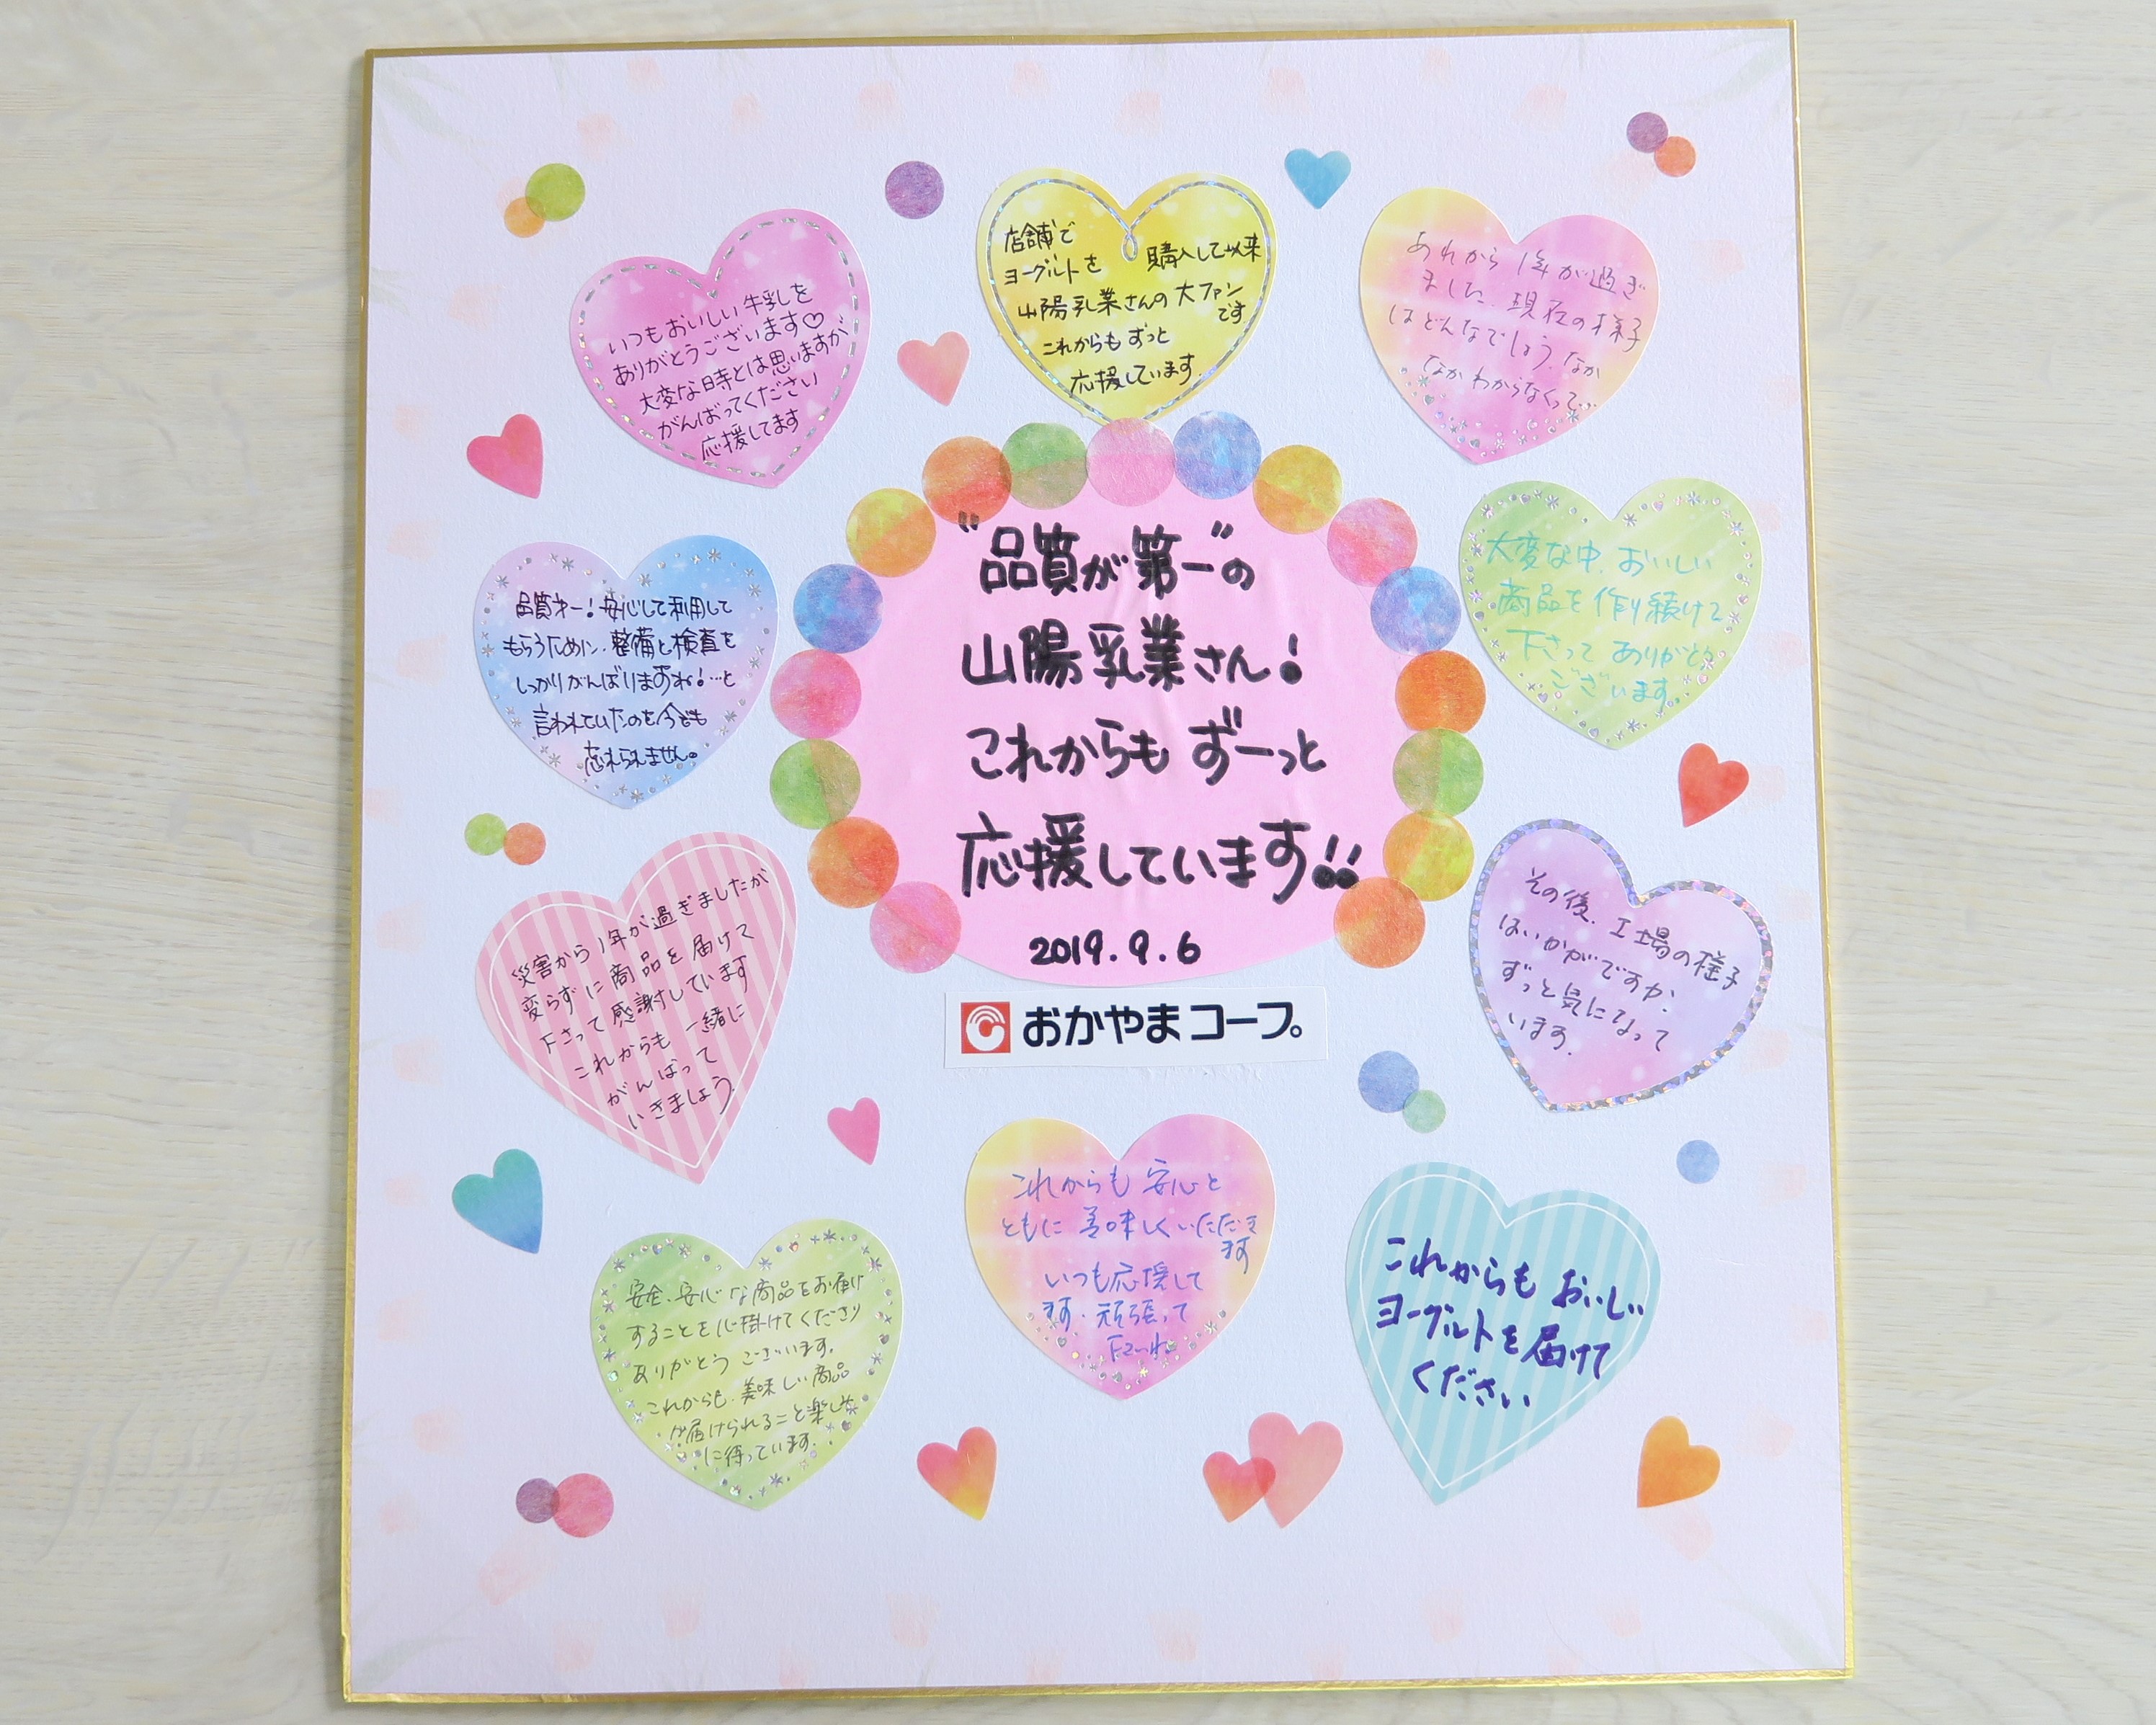 いつもおいしい牛乳を
ありがとうございます♡
大変な時とは思いますが
がんばってください
応援してます
店舗で
ヨーグルトを 購入して以来
山陽乳業さんの大ファン
です
これからもずっと
応援しています.
あれから1年が過ぎ
ました.現在の様子
はどんなでしょう.なか
なかわからなくって…
品質才一!安心して利用して
もらうために、整備と検査を
しっかりがんばりますね!…と
言われていたのを今でも
忘れられません。
"品質が第一"の
山陽乳業さん!
これからも ずーっと
応援しています!!
2019.9.6
おかやまコープ。
大変な中、おいしい
商品を作り続けて
下さって ありがとう
ございます
災害から1年が過ぎましたが
変らずに商品を届けて
下さって感謝しています
これからも 一緒に
がんばって
いきましょう
その後、工場の様子
はいかがですか.
ずっと気になって
います.
安全、安心な商品をお届け
することを心掛けてくださり
ありがとう ございます.
これからも、美味しい商品
が届けられること楽しみ
に待っています.
これからも 安心と
ともに 美味しくいただき
ます
いつも応援して
ます.頑張って
下さいね
これからも おいしい
ヨーグルトを届けて
ください